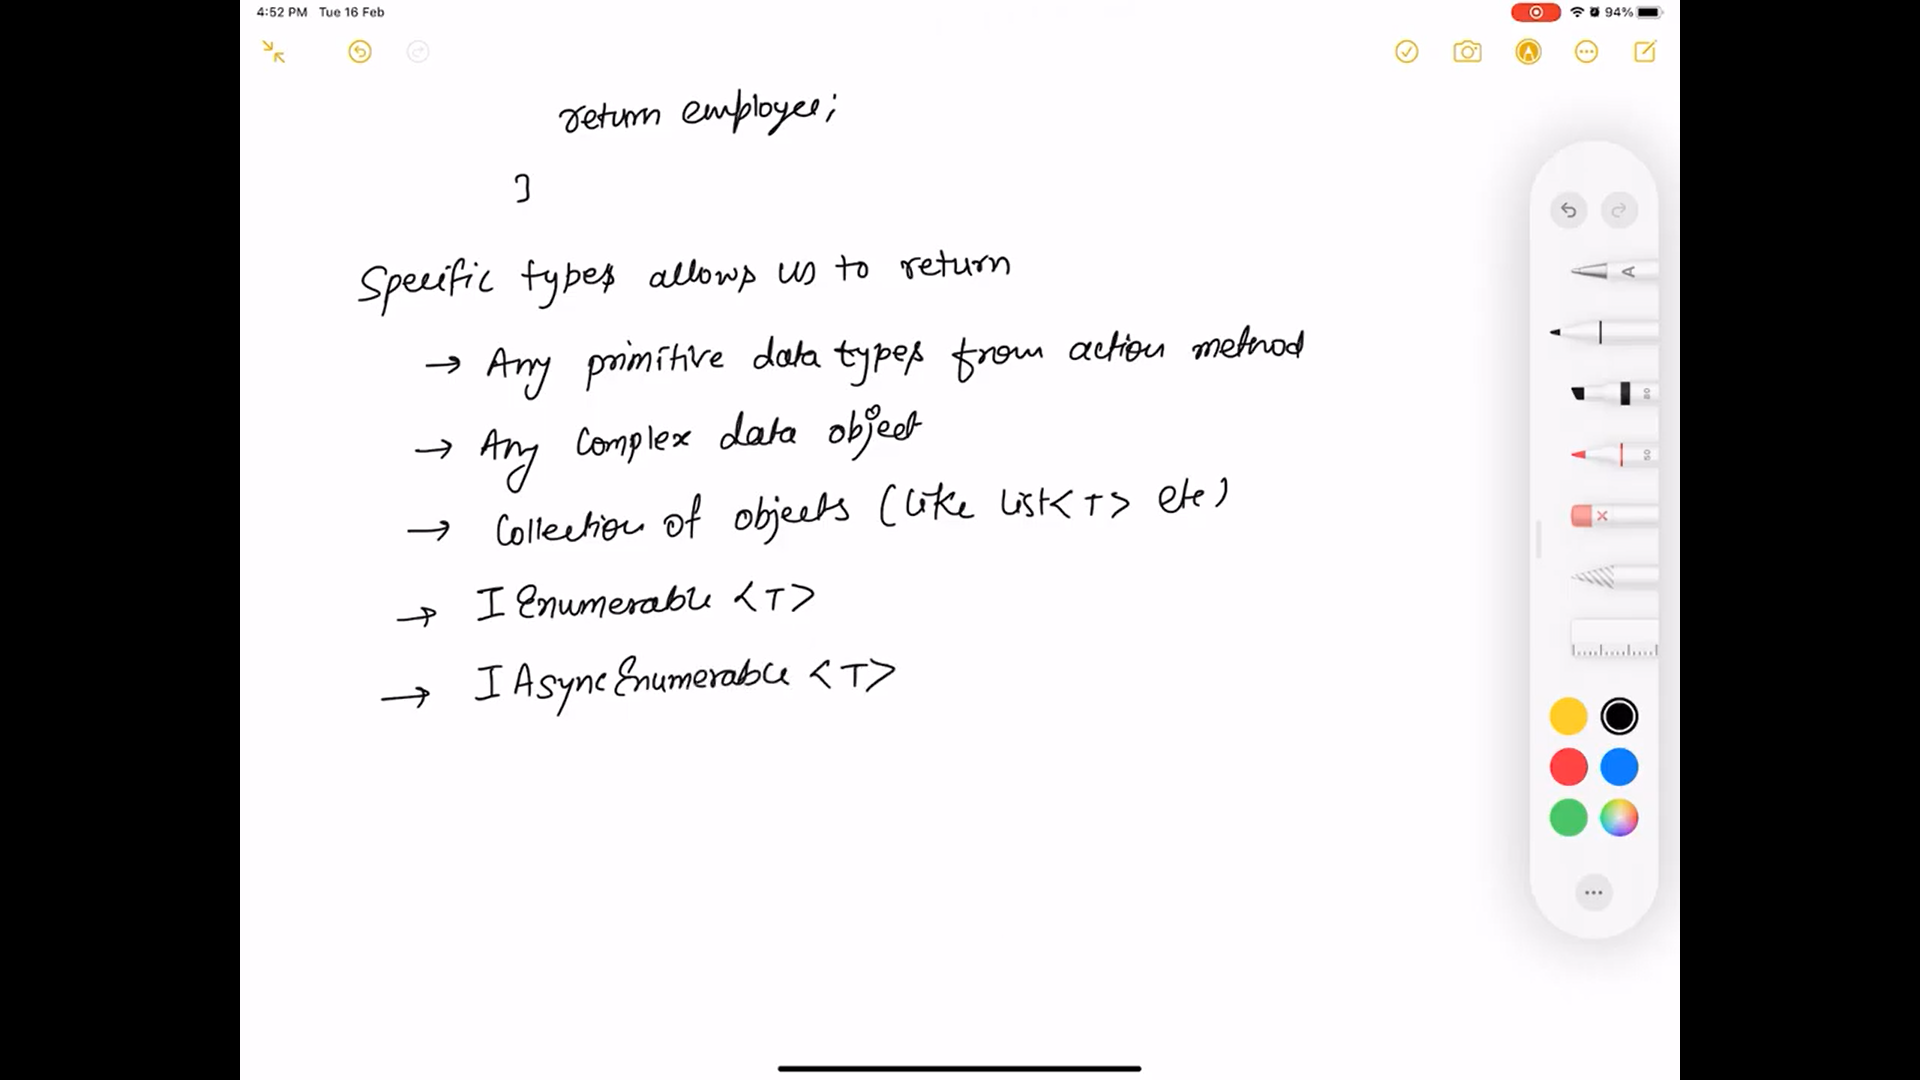 4:52 PM Tue 16 Feb
94%
return employee;
}
Specific types allows us to return
→ Any primitive data types from action method
→ Any complex data object
→ Collection of objects (like List<T> etc)
→ IEnumerable <T>
→ IAsyncEnumerable <T>
A
80
50